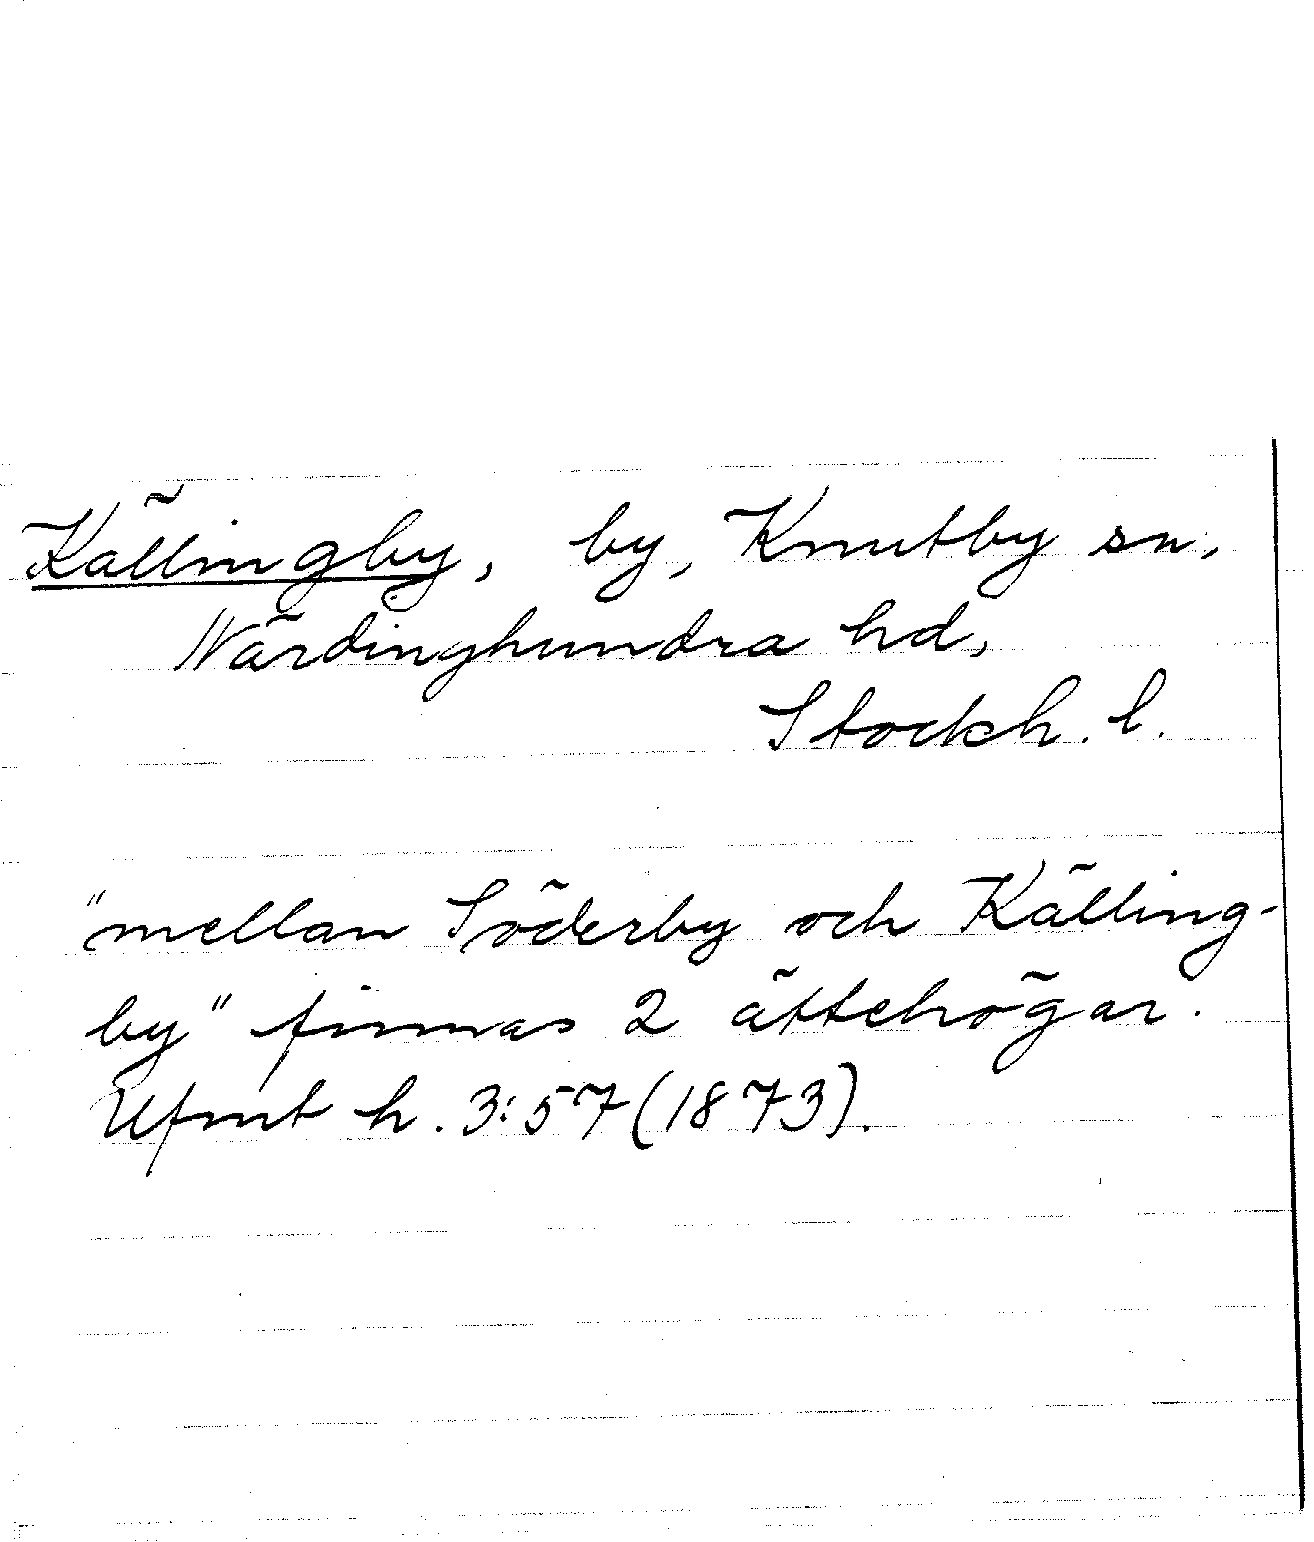 Källingby, by, Knutby sn,
Närdinghundra hd,
Stockh. l.
"mellan Söderby och Källing-
by" finnas 2 ättehögar.
Ufmt h. 3:57 (1873).